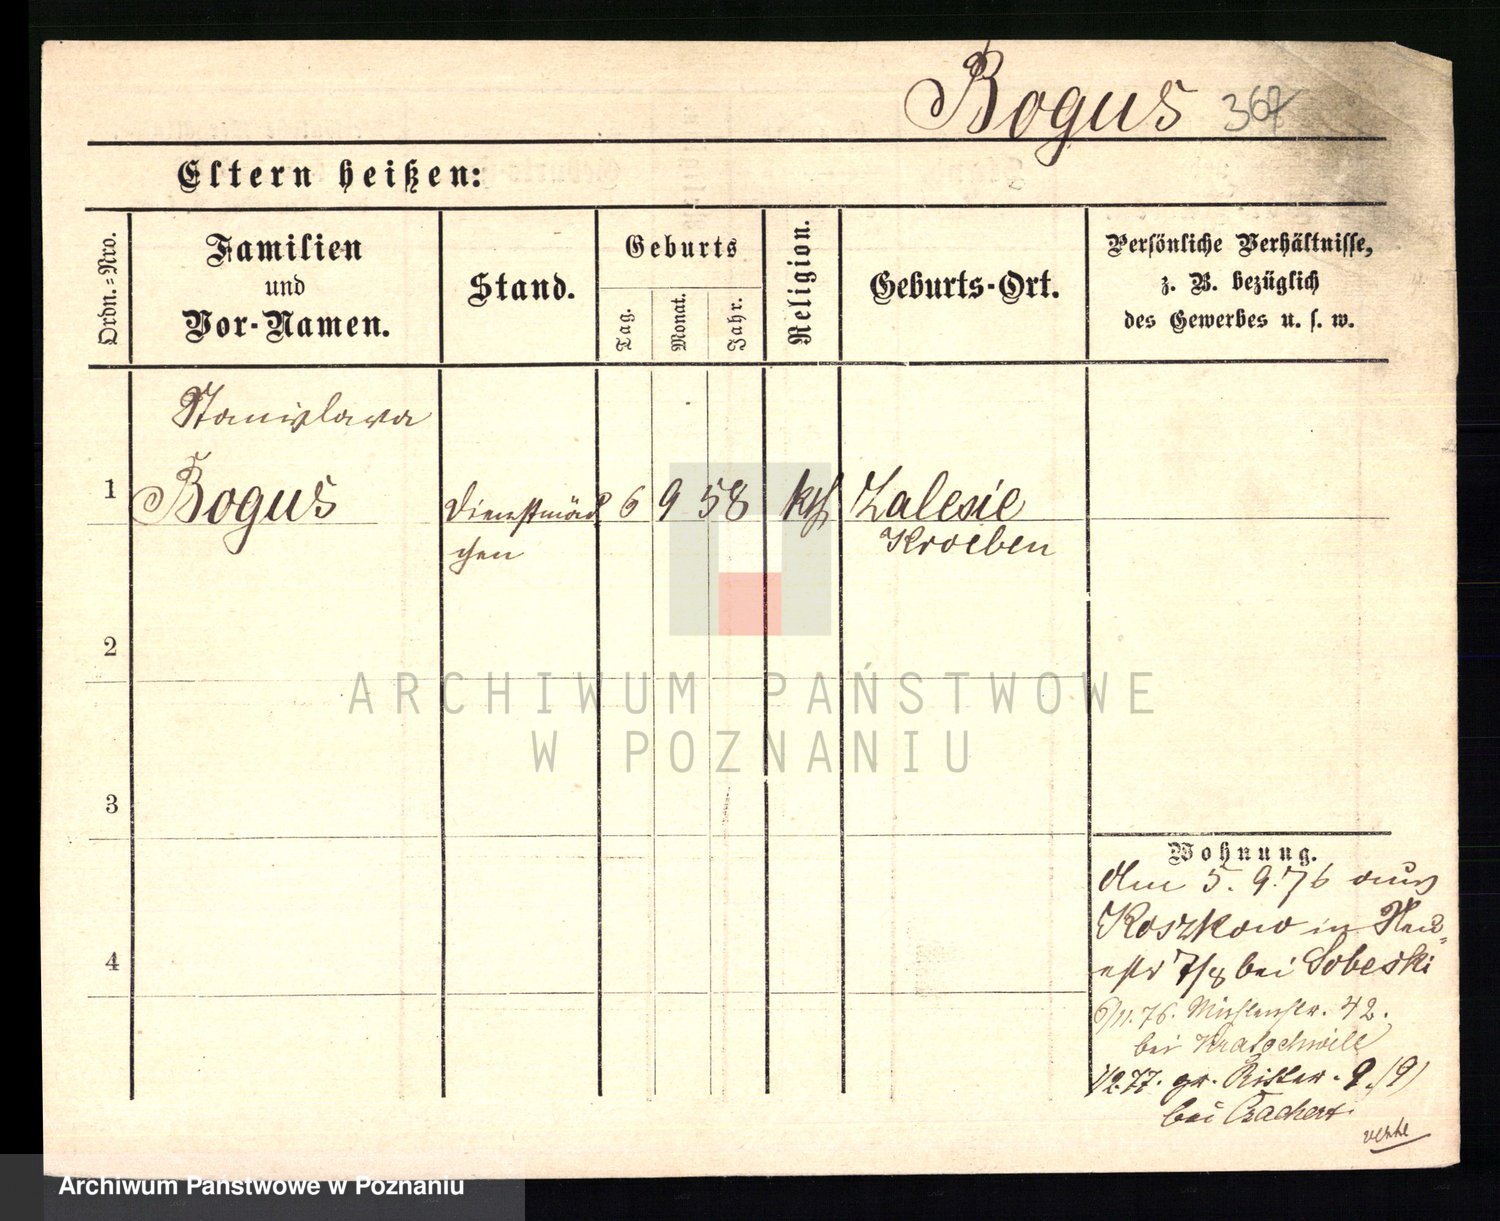 Bogus 367
Eltern heißen:
Ordn.-Nro.
Familien
und
Vor-Namen.
Stand.
Geburts
Tag.
Monat.
Jahr.
Religion.
Geburts-Ort.
Persönliche Verhältnisse,
z. B. bezüglich
des Gewerbes u. s. w.
Stanislawa
1 Bogus Dienstmäd 6 9 58 kth Zalesie
chen Kroeben
2
3
4
Wohnung.
Am 5. 9. 76 aus
Koszkowo in Neu=
estr 7/8 bei Sobeski
6/11. 76. Mühlenstr. 42.
bei Kratochwill
1/2. 77. gr. Ritter. 9. (9)
bei
ARCHIWUM PAŃSTWOWE
W POZNANIU
Archiwum Państwowe w Poznaniu